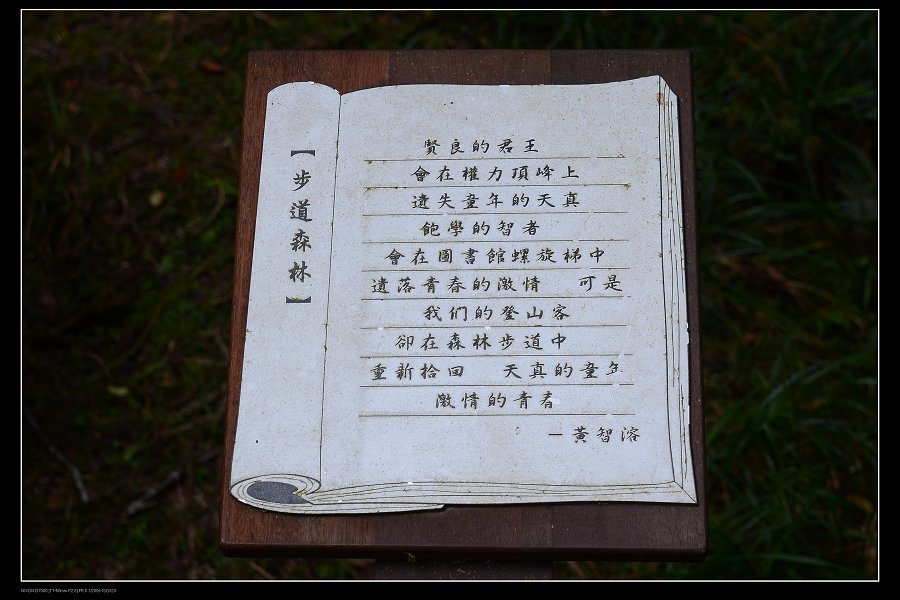 【步道森林】
賢良的君王
會在權力頂峰上
遺失童年的天真
飽學的智者
會在圖書館螺旋梯中
遺落青春的激情 可是
我们的登山客
卻在森林步道中
重新拾回 天真的童年
激情的青春
─黃智溶